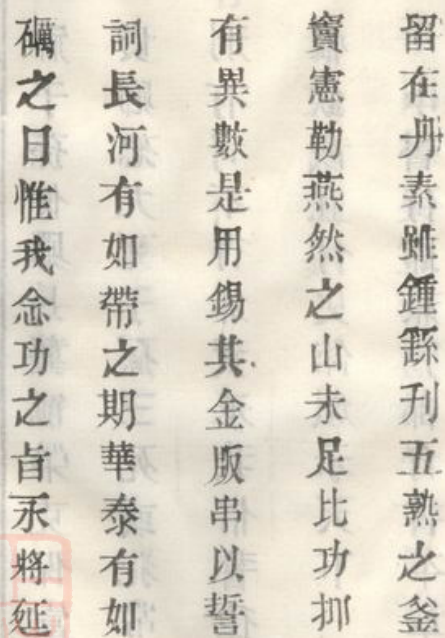 留在丹素雖鍾繇刋五熟之釜
竇憲勒燕然之山未足比功抑
有異數是用錫其金版串以誓
詞長河有如帶之期華泰有如
礪之日惟我念功之旨永將延